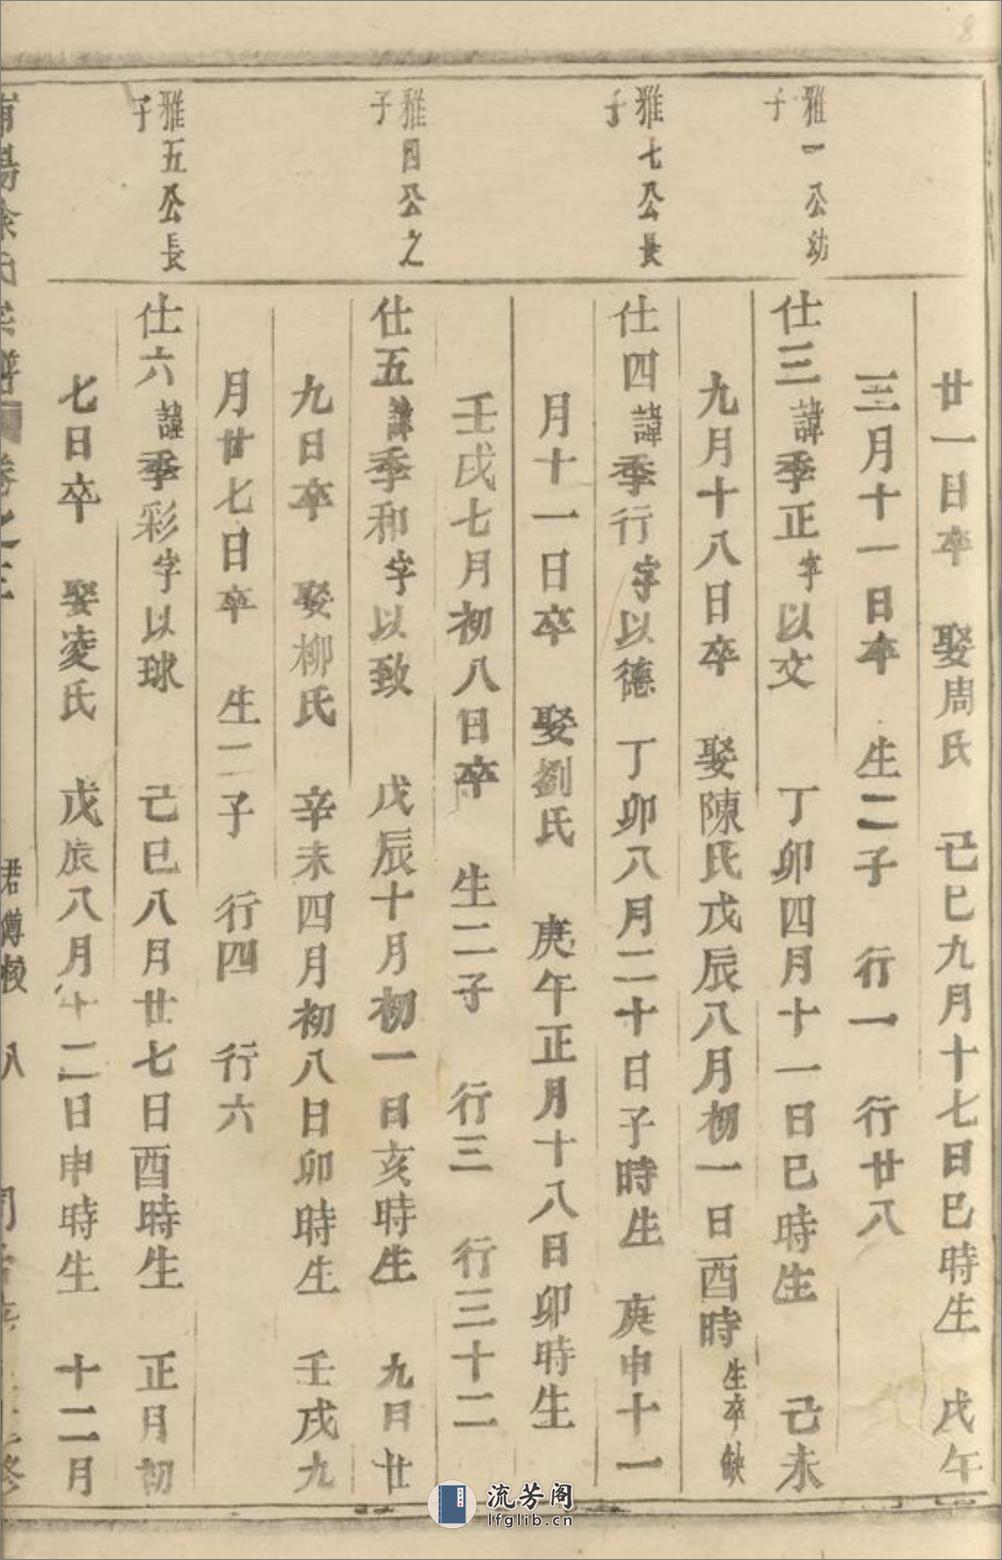 廿一日卒 娶周氏 己巳九月十七日巳時生 戊午
三月十一日卒 生二子 行一 行廿八
雅一公幼子
仕三諱季正字以文 丁卯四月十一日巳時生 己未
九月十八日卒 娶陳氏戊辰八月初一日酉時生卒缺
雅七公長子
仕四諱季行字以德 丁卯八月二十日子時生 庚申十一
月十一日卒 娶劉氏 庚午正月十八日卯時生
壬戌七月初八日卒 生二子 行三 行三十二
雅四公之子
仕五諱季和字以致 戊辰十月初一日亥時生 九日廿
九日卒 娶柳氏 辛未四月初八日卯時生 壬戌九
月廿七日卒 生二子 行四 行六
雅五公長子
仕六諱季彩字以球 己巳八月廿七日酉時生 正月初
七日卒 娶凌氏 戊辰八月十二日申時生 十二月
余氏宗譜 卷之三 君傅校 八
流芳阁
lfglib.cn
8